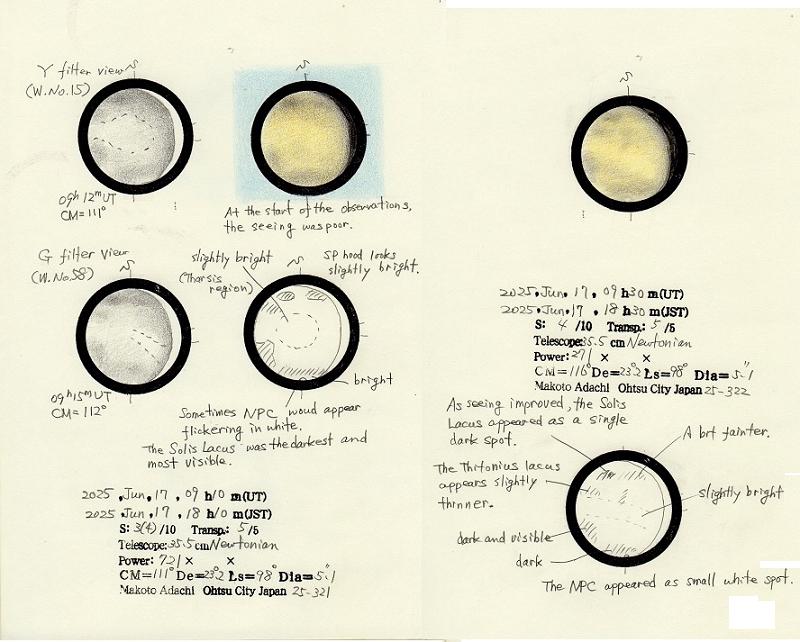 Y filter view
(W.No.15)
09h 12m UT
CM=111°
At the start of the observations,
the seeing was poor.
G filter View
(W.No.58)
09h 15m UT
CM=112°
slightly bright
(Tharsis
region)
SP hood looks
slightly bright.
bright
Sometimes NPC woud appear
flickering in white.
The Solis Lacus was the darkest and
most visible.
2025, Jun, 17, 09 h 10 m(UT)
2025, Jun, 17, 18 h 10 m(JST)
S: 3(4)/10 Transp.: 5/5
Telescope:35.5 cm Newtonian
Power: 721 × ×
CM=111° De=23°.2 Ls=98° Dia=5".1
Makoto Adachi Ohtsu City Japan 25-321
2025, Jun, 17, 09 h30 m(UT)
2025, Jun, 17, 18 h30 m(JST)
S: 4 /10 Transp.: 5 /5
Telescope:35.5 cm Newtonian
Power: 271 × ×
CM=116° De=23°.2 Ls=98° Dia=5".1
Makoto Adachi Ohtsu City Japan 25-322
As seeing improved, the Solis
Lacus appeared as a single
dark spot.
A brt fainter.
The Thitonius lacus
appears slightly
thinner.
slightly bright
dark and visible
dark
The NPC appeared as small white spot.